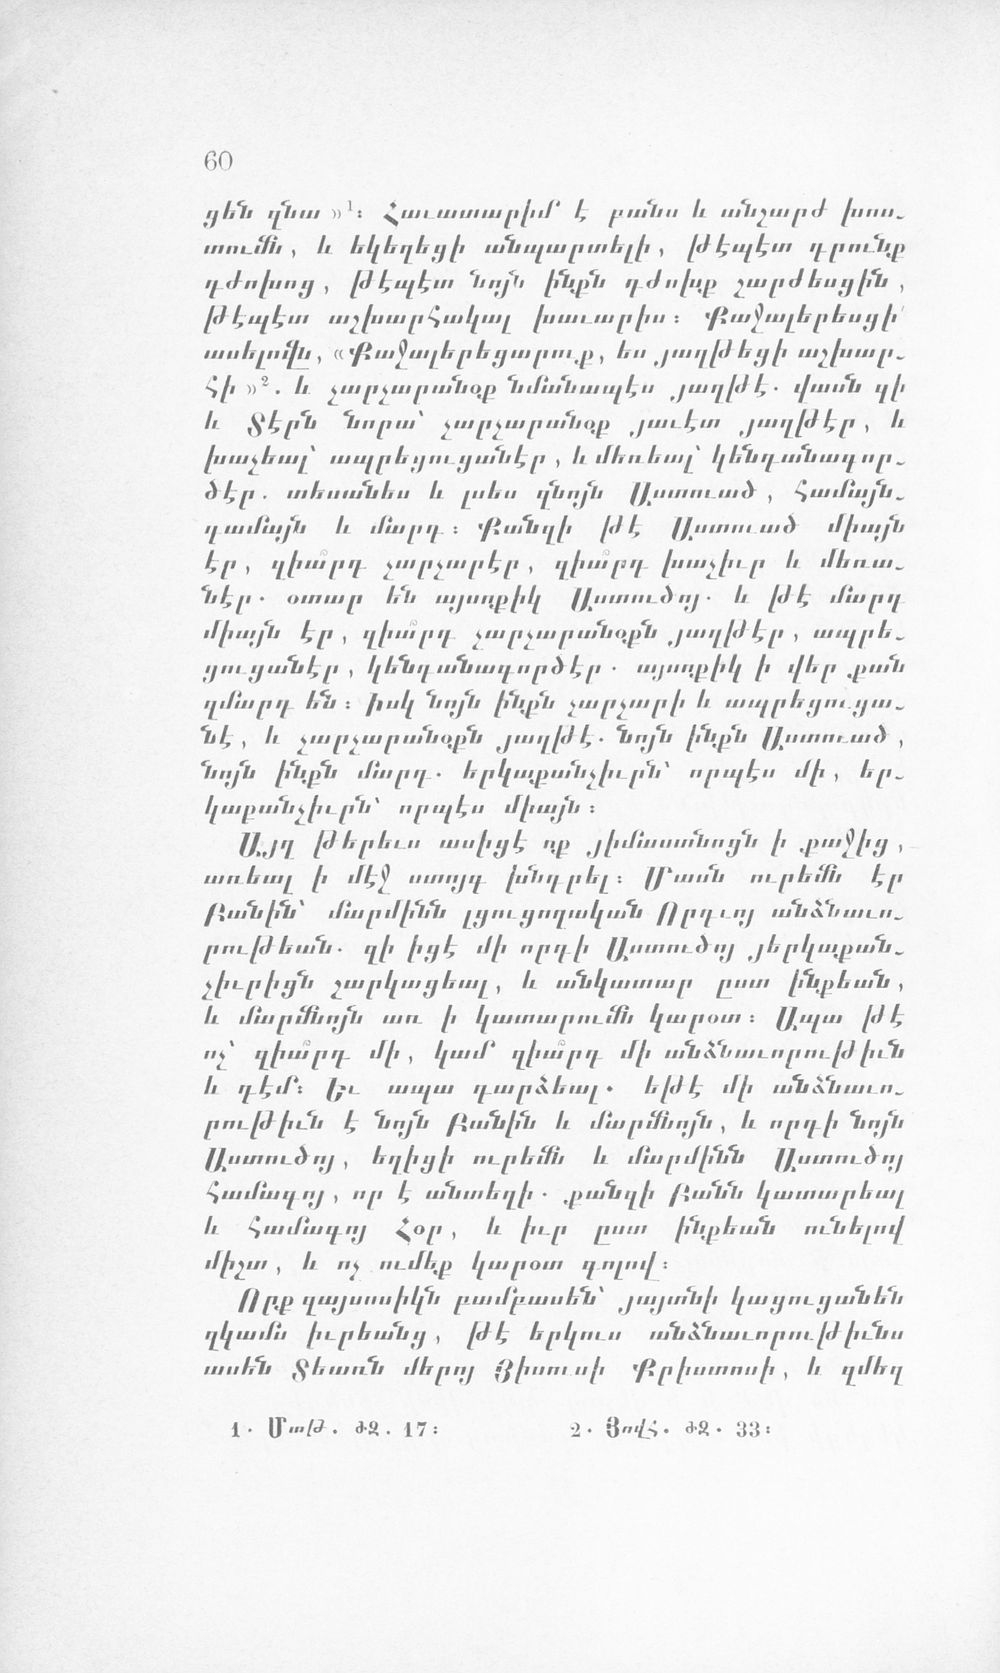 60
ցեն զնա »¹։ Հաւատարիմ է բանս և անշարժ խոս֊
տումն, և եկեղեցի անպարտելի, թէպէտ դրունք
դժոխոց, թէպէտ նոյն ինքն դժոխք շարժեսցին,
թէպէտ աշխարհակալ խաւարիս։ Քաջալերեսցի՛
ասելովն, «Քաջալերեցարուք, ես յաղթեցի աշխար֊
հի »². և չարչարանօք նմանապէս յաղթէ. վասն զի
և Տէրն նորա՝ չարչարանօք յաւէտ յաղթէր, և
խաչեալ՝ ապրեցուցանէր, և մեռեալ՝ կենդանագոր֊
ծէր. տեսանես և լսես զնոյն Աստուած, համայն֊
գամայն և մարդ։ Քանզի թէ Աստուած միայն
էր, զիա՞րդ չարչարէր, զիա՞րդ խաչիւր և մեռա֊
նէր. օտար են այսոքիկ Աստուծոյ. և թէ մարդ
միայն էր, զիա՞րդ չարչարանօքն յաղթէր, ապրե֊
ցուցանէր, կենդանագործէր. այսոքիկ ի վեր քան
զմարդ են։ Իսկ նոյն ինքն չարչարի և ապրեցուցա֊
նէ, և չարչարանօքն յաղթէ. նոյն ինքն Աստուած,
նոյն ինքն մարդ. երկաքանչիւրն՝ որպէս մի, եր֊
կաքանչիւրն՝ որպէս միայն։
Այղ թերեւս ասիցէ ոք յիմաստնոցն ի քաջից,
առեալ ի մէջ ստոյգ խնդրել։ Մասն ուրեմն էր
Բանին՝ մարմինն լցուցողական Որդւոյ անձնաւո֊
րութեան. զի իցէ մի որդի Աստուծոյ յերկաքան֊
չիւրիցն շարկացեալ, և անկատար ըստ ինքեան,
և մարմնոյն առ ի կատարումն կարօտ։ Ապա թէ
ոչ՝ զիա՞րդ մի, կամ զիա՞րդ մի անձնաւորութիւն
և դէմ։ Եւ ապա դարձեալ. եթէ մի անձնաւո֊
րութիւն է նոյն Բանին և մարմնոյն, և որդի նոյն
Աստուծոյ, եղիցի ուրեմն և մարմինն Աստուծոյ
համագոյ, որ է անտեղի. քանզի Բանն կատարեալ
և համագոյ Հօր, և իւր ըստ ինքեան ունելով
միշտ, և ոչ ումեք կարօտ գոլով։
Որք զայսոսիկն բամբասեն՝ յայտնի կացուցանեն
զկամս իւրեանց, թէ երկուս անձնաւորութիւնս
ասեն Տեառն մերոյ Յիսուսի Քրիստոսի, և զմեղ
1. Մատթ. ԺԶ. 17։ 2. Յովհ. ԺԶ. 33։